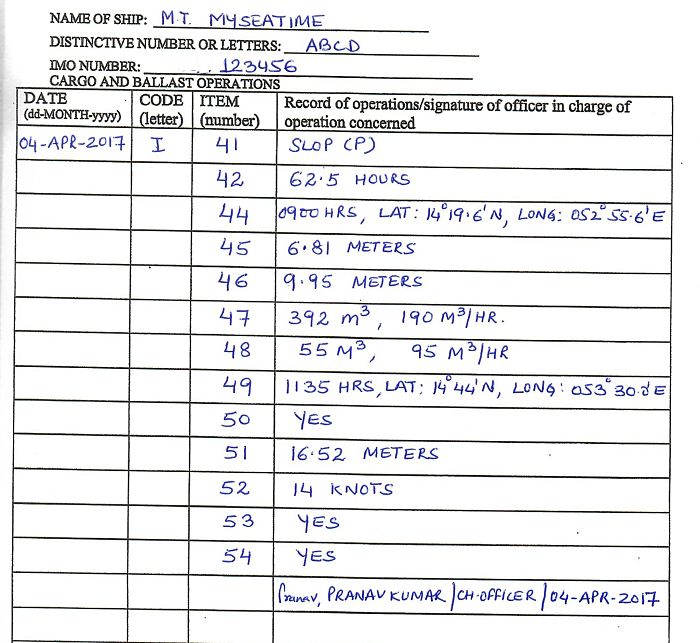 NAME OF SHIP: M.T. MYSEATIME
DISTINCTIVE NUMBER OR LETTERS: ABCD
IMO NUMBER: 123456
CARGO AND BALLAST OPERATIONS
DATE (dd-MONTH-yyyy) CODE (letter) ITEM (number) Record of operations/signature of officer in charge of operation concerned
04-APR-2017 I 41 SLOP (P)
42 62.5 HOURS
44 0900 HRS, LAT: 14°19.6'N, LONG: 052°55.6'E
45 6.81 METERS
46 9.95 METERS
47 392 m³, 190 M³/HR.
48 55 M³, 95 M³/HR
49 1135 HRS, LAT: 14°44'N, LONG: 053°30.2E
50 YES
51 16.52 METERS
52 14 KNOTS
53 YES
54 YES
Pranav, PRANAV KUMAR / CH.OFFICER / 04-APR-2017